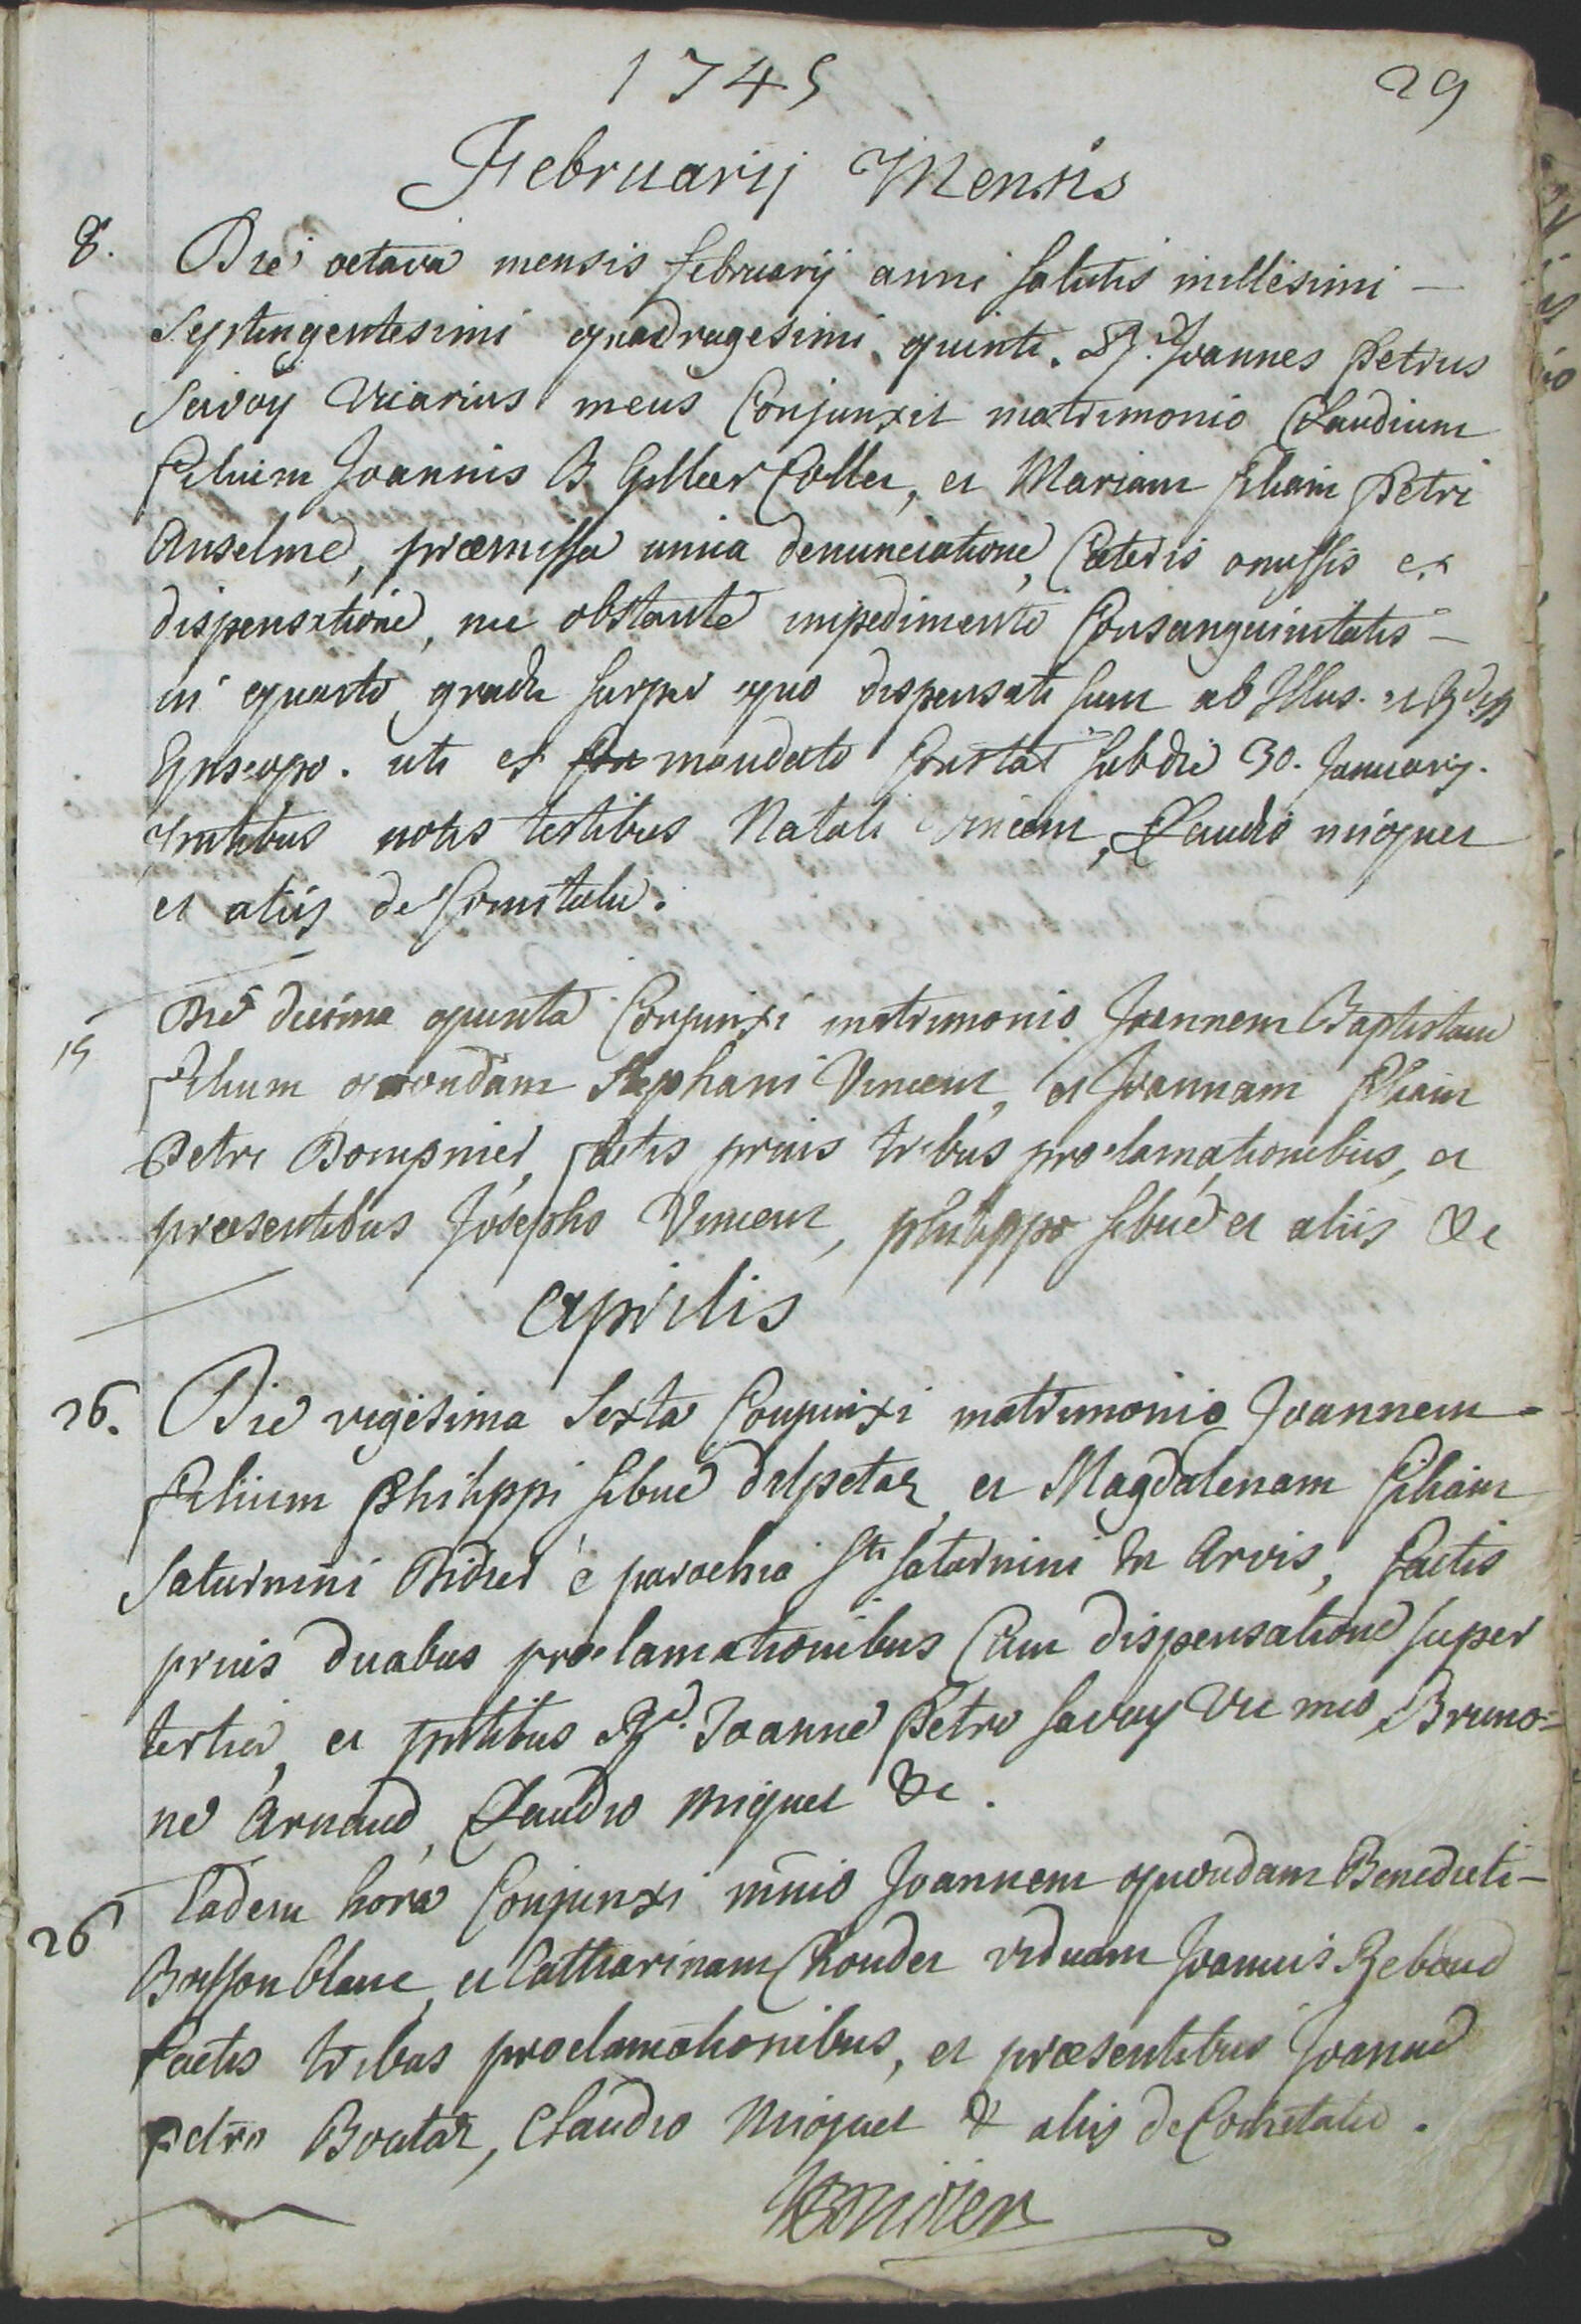 1745 29
Februarij Mensis
8. Die octava mensis februarij anni salutis millesimi –
septingentesimi quadragesimi quinti. Rd. Joannes Petrus
Savoy vicarius meus Conjunxit matrimonio Claudium
filium Joannis B Collet, et Mariam filiam Petri
Anselme, præmissa unica denunciatione, Cæteris omissis ex
dispensatione, nec obstante impedimento Consanguinitatis –
in quarto gradu super quo dispensati sunt ab Illus. et Rdss
Episcopo. uti ex mandato Constat sub die 30. Januarij.
pntibus notis testibus Natali Claudio mioguet
et aliis de Comitatu.
15 Die decima quinta Conjunxi matrimonio Joannem Baptistam
filium quondam Stephani Vincent, et Joannam filiam
Petri Dompnier, factis prius tribus proclamationibus, et
præsentibus Josepho Vincent, philippo sibué et aliis &c
aprilis
26. Die vigesima sexta Conjunxi matrimonio Joannem
filium Philippi sibué delpetaz et Magdalenam filiam
Saturnini Didier è parochia Sti saturnini in Arvis, factis
prius duabus proclamationibus Cum dispensatione super
tertia, et pntibus Rd. Joanne Petro Savoy vic meo, Bruno=
ne Arnaud, Claudio mioguet &c.
26 Eadem hora Conjunxi mnio Joannem quondam Benedicti –
Buisson blanc, et Catharinam Choudet viduam Joannis Rebaud
factis tribus proclamationibus, et præsentibus Joanne
petro Boutaz, Claudio Mioguet & aliis de Comitatu.